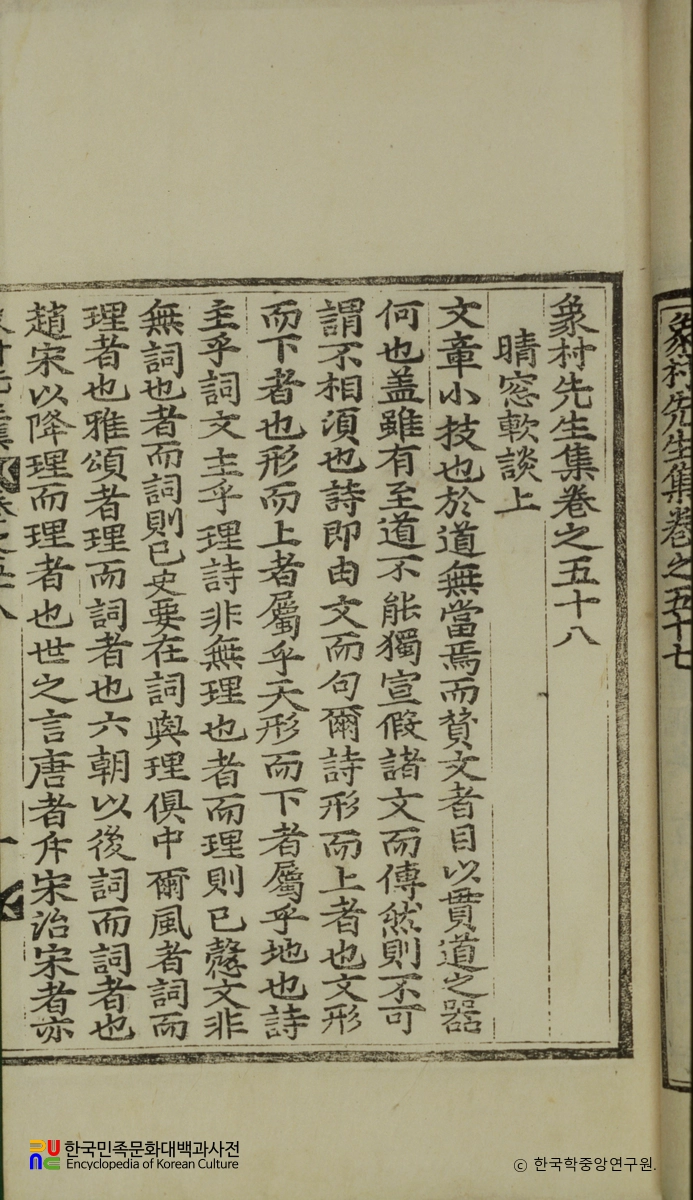 象村先生集卷之五十七
象村先生集卷之五十八
晴窓軟談上
文章小技也於道無當焉而賛文者目以貫道之器
何也盖雖有至道不能獨宣假諸文而傳然則不可
謂不相湏也詩即由文而句爾詩形而上者也文形
而下者也形而上者屬乎天形而下者屬乎地也詩
主乎詞文主乎理詩非無理也者而理則已慤文非
無詞也者而詞則已史要在詞與理俱中爾風者詞而
理者也雅頌者理而詞者也六朝以後詞而詞者也
趙宋以降理而理者也世之言唐者斥宋治宋者亦
한국민족문화대백과사전
Encyclopedia of Korean Culture
ⓒ 한국학중앙연구원.